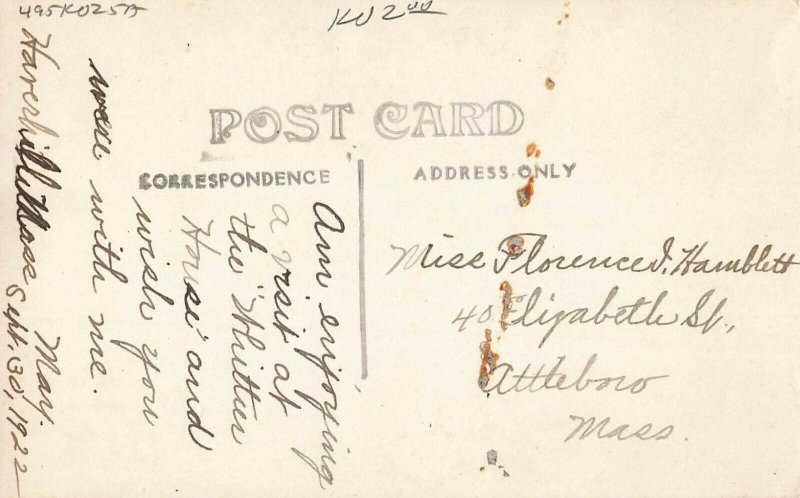 495KO25A
KU 2.00
POST CARD
CORRESPONDENCE
ADDRESS ONLY
Am enjoying
a visit at
the "Whittier
House" and
wish you
were with me.
May.
Haverhill Mass
Sept. 30, 1922
Miss Florence I. Hamblett
40 Elizabeth St.,
Attleboro
Mass.